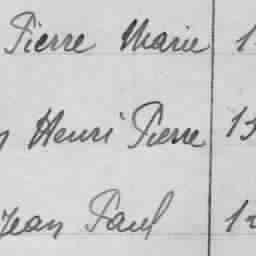 Pierre Marie
Henri Pierre
Jean Paul